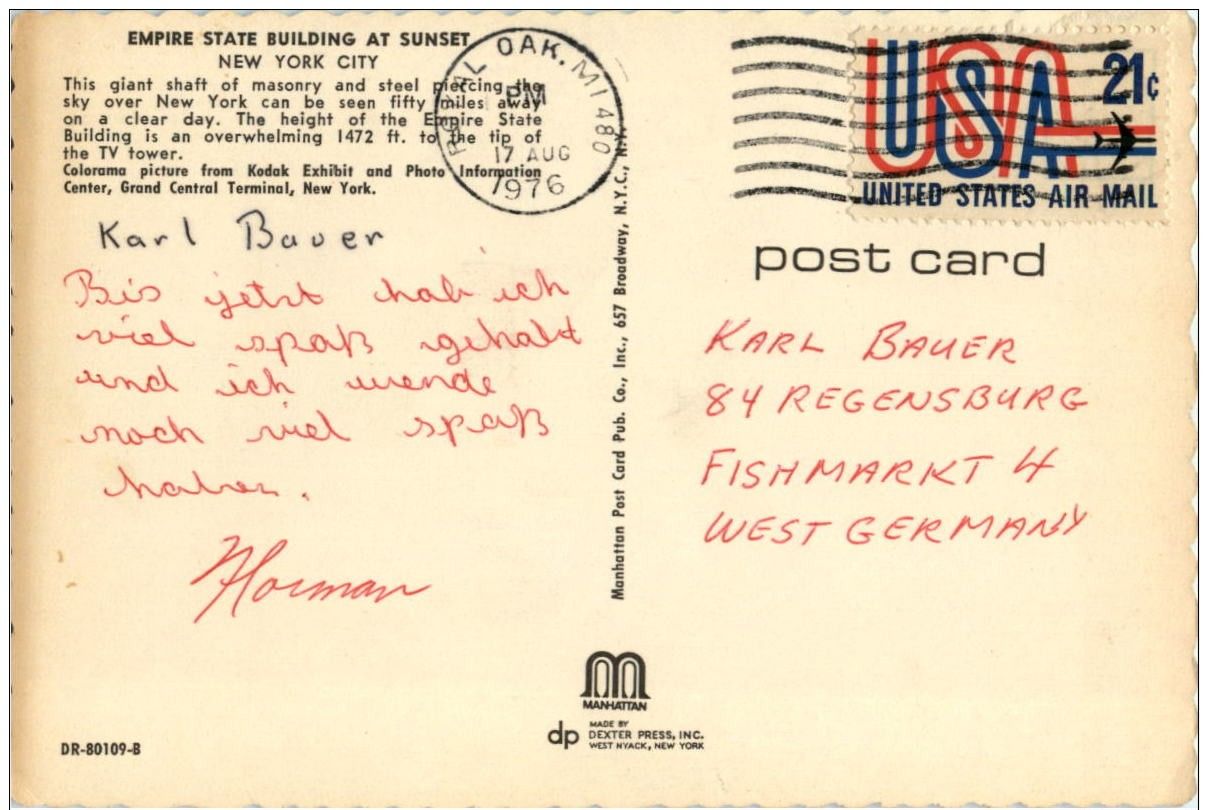 EMPIRE STATE BUILDING AT SUNSET
NEW YORK CITY
This giant shaft of masonry and steel piercing the
sky over New York can be seen fifty miles away
on a clear day. The height of the Empire State
Building is an overwhelming 1472 ft. to the tip of
the TV tower.
Colorama picture from Kodak Exhibit and Photo Information
Center, Grand Central Terminal, New York.
Karl Bauer
Bis jetzt hab ich
viel spaß gehabt
und ich werde
noch viel spaß
haben.
Norman
DR-80109-B
ROYAL OAK. MI 480
PM
17 AUG
1976
Manhattan Post Card Pub. Co., Inc., 657 Broadway, N.Y.C., N.Y.
USA
21¢
UNITED STATES AIR MAIL
post card
KARL BAUER
84 REGENSBURG
FISHMARKT 4
WEST GERMANY
MANHATTAN
dp
MADE BY
DEXTER PRESS, INC.
WEST NYACK, NEW YORK